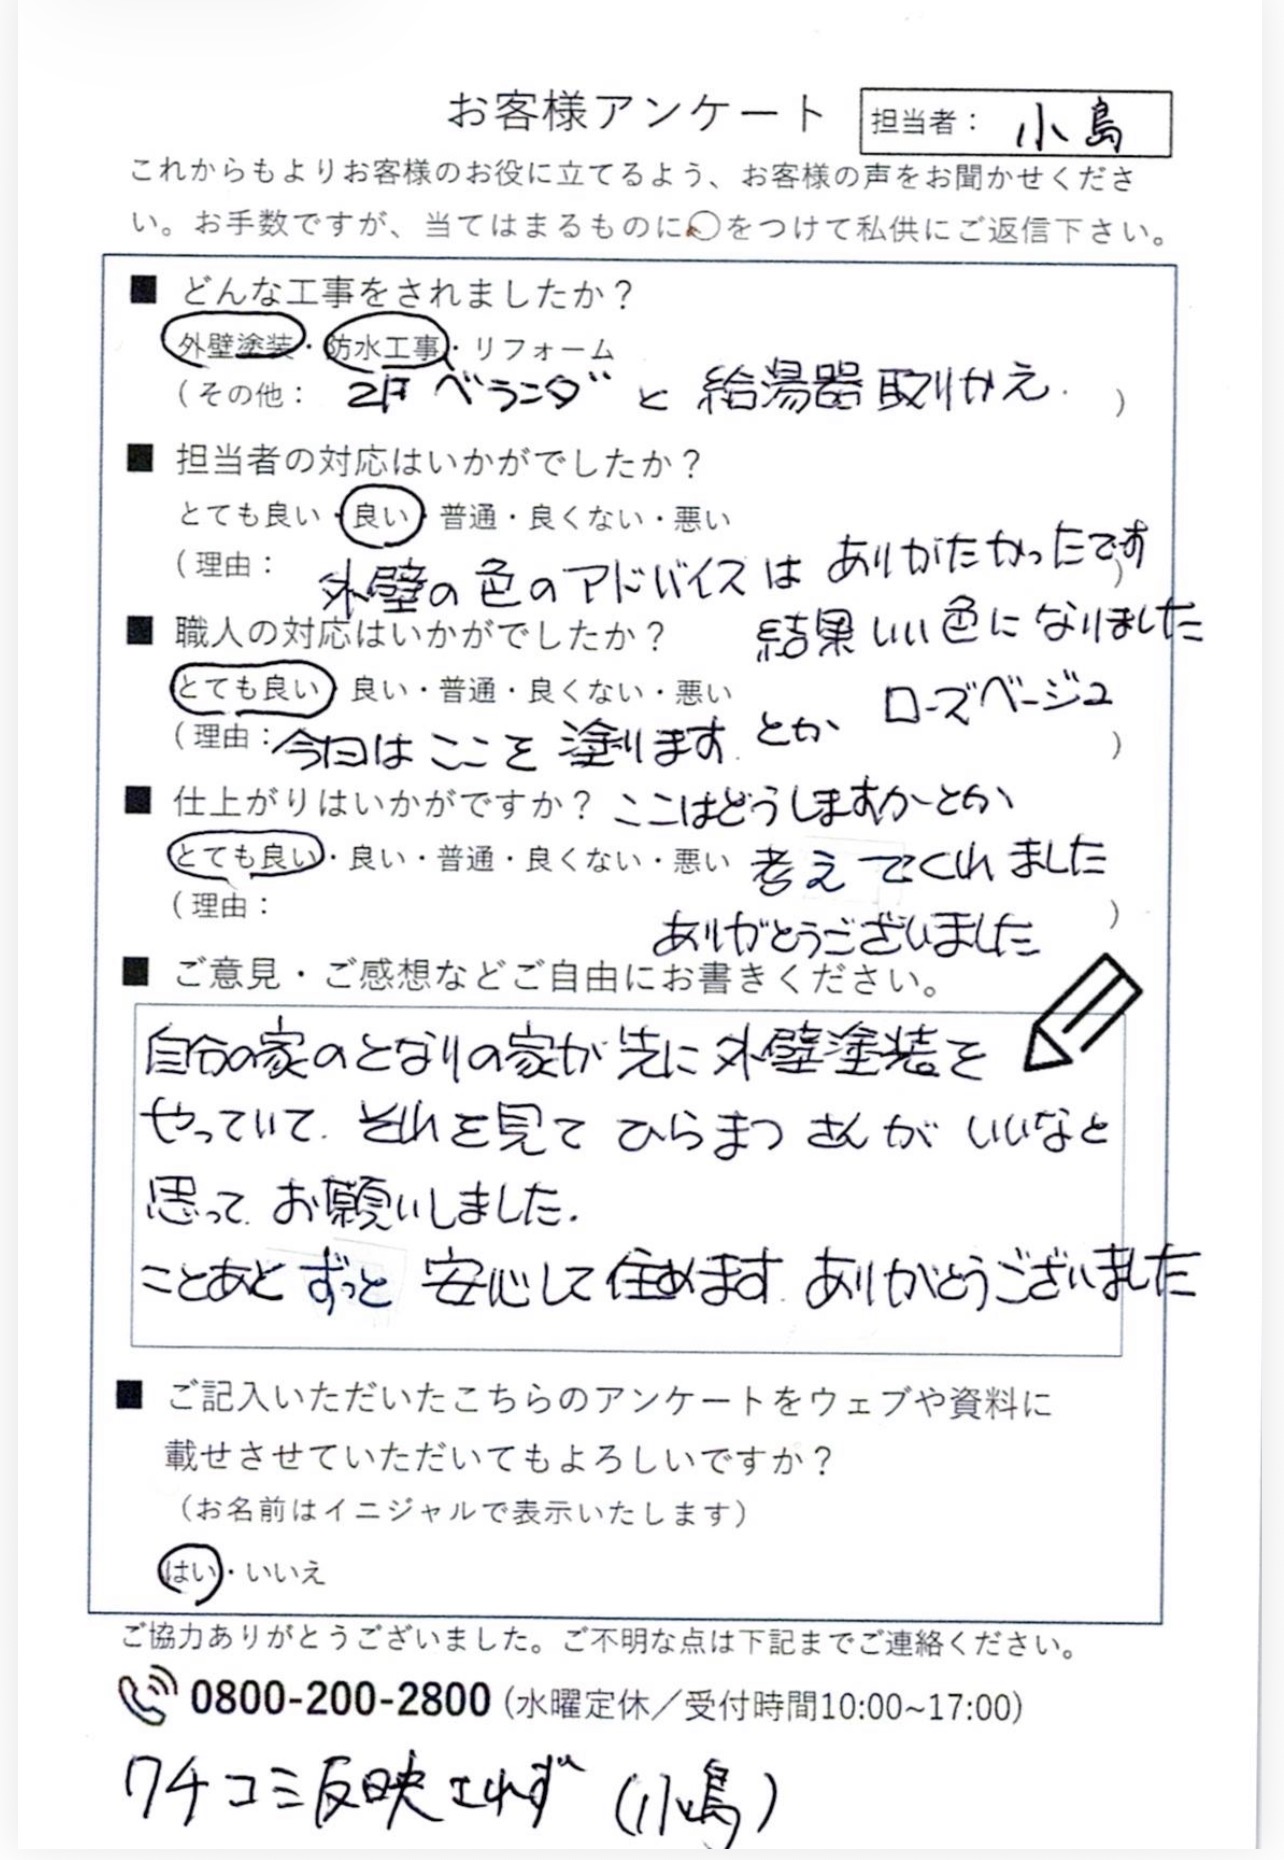 お客様アンケート
担当者： 小島
これからもよりお客様のお役に立てるよう、お客様の声をお聞かせくださ
い。お手数ですが、当てはまるものに○をつけて私供にご返信下さい。
■ どんな工事をされましたか？
外壁塗装・防水工事・リフォーム
（その他： 2F ベランダ と 給湯器 取りかえ. ）
■ 担当者の対応はいかがでしたか？
とても良い・良い・普通・良くない・悪い
（理由： 外壁の色のアドバイスは ありがたかったです ）
結果 いい色に なりました
ローズベージュ
■ 職人の対応はいかがでしたか？
とても良い・良い・普通・良くない・悪い
（理由：今日は ここを 塗ります. とか ）
ここはどうしますかーとか
考えてくれました
ありがとうございました
■ 仕上がりはいかがですか？
とても良い・良い・普通・良くない・悪い
（理由： ）
■ ご意見・ご感想などご自由にお書きください。
自分の家のとなりの家が 先に 外壁塗装を
やっていて. それを見て ひらまつ さんが いいなと
思って. お願いしました.
ことあと ずっと 安心して住めます. ありがとうございました
■ ご記入いただいたこちらのアンケートをウェブや資料に
載せさせていただいてもよろしいですか？
（お名前はイニジャルで表示いたします）
はい・いいえ
ご協力ありがとうございました。ご不明な点は下記までご連絡ください。
0800-200-2800 (水曜定休／受付時間10:00~17:00)
クチコミ反映されず (小島)